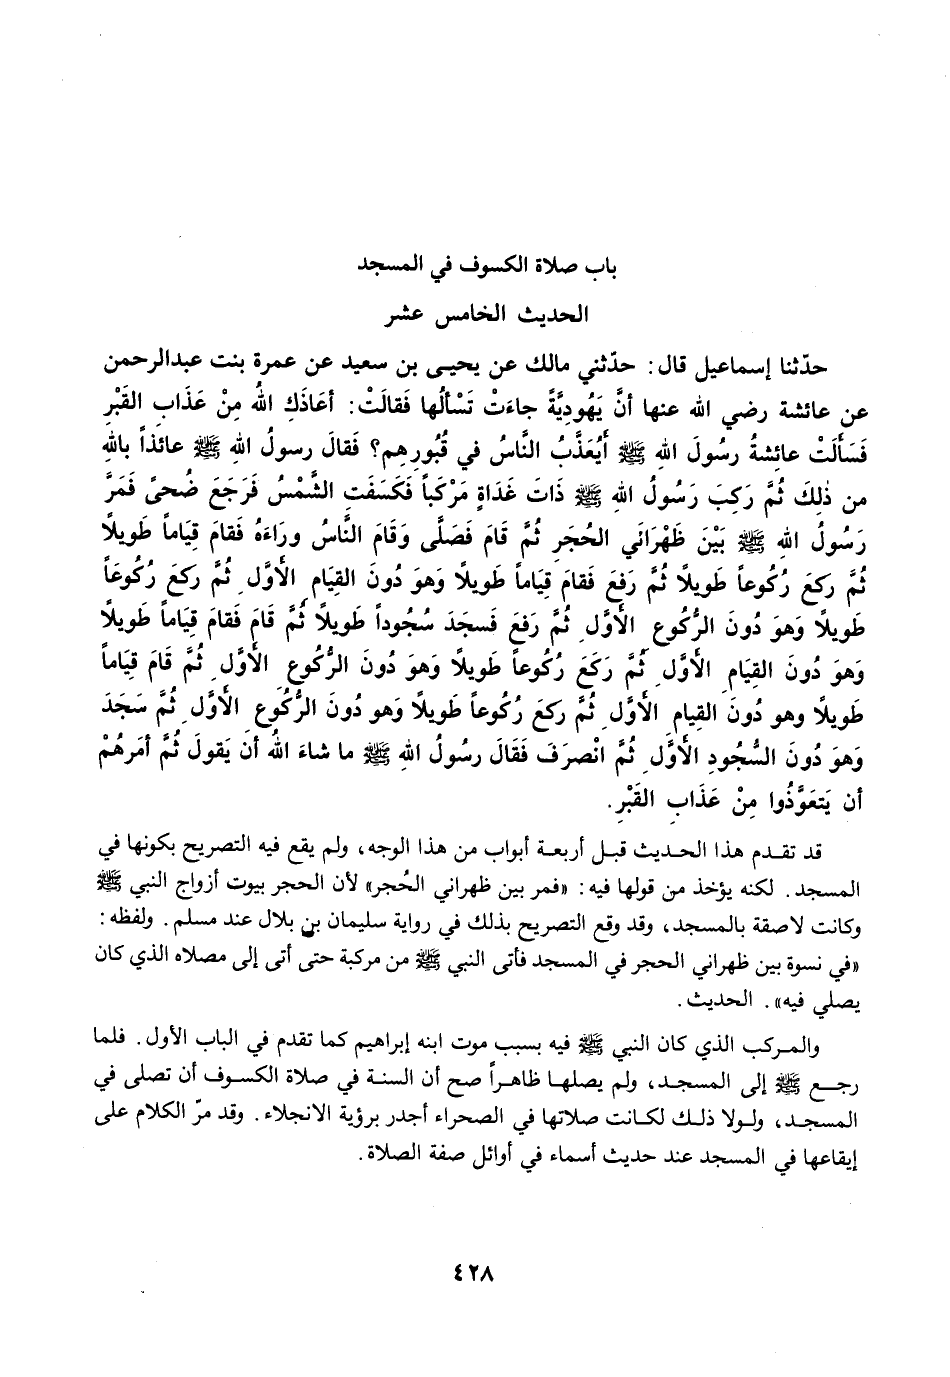 باب صلاة الكسوف في المسجد
الحديث الخامس عشر
حدّثنا إسماعيل قال: حدّثني مالك عن يحيى بن سعيد عن عمرة بنت عبدالرحمن
عن عائشة رضي الله عنها أنَّ يَهُودِيَّةً جاءَتْ تَسْأَلُها فَقالَتْ: أعاذَكِ اللهُ مِنْ عَذَابِ القَبْرِ
فَسَأَلَتْ عائِشةُ رسُولَ اللهِ ﷺ أَيُعَذَّبُ النَّاسُ في قُبُورِهِم؟ فَقال رسولُ اللهِ ﷺ عائذاً باللهِ
من ذٰلِكَ ثُمَّ رَكِبَ رَسُولُ اللهِ ﷺ ذَاتَ غَدَاةٍ مَرْكَباً فَكَسَفَتِ الشَّمْسُ فَرَجَعَ ضُحىً فَمَرَّ
رَسُولُ اللهِ ﷺ بَيْنَ ظَهْرَانَي الحُجَرِ ثُمَّ قَامَ فَصَلَّى وَقَامَ النَّاسُ ورَاءَهُ فَقامَ قِيَاماً طَويلاً
ثُمَّ ركعَ رُكُوعاً طَويلاً ثُمَّ رَفعَ فَقامَ قِيَاماً طَويلاً وَهوَ دُونَ القيَامِ الأَوَّلِ ثُمَّ ركعَ رُكُوعَاً
طَويلاً وَهوَ دُونَ الرُّكُوعِ الأَوَّلِ ثُمَّ رَفعَ فَسجَدَ سُجُوداً طَويلاً ثُمَّ قَامَ فَقامَ قِيَاماً طَويلاً
وَهوَ دُونَ القيَامِ الأَوَّلِ ثُمَّ رَكَعَ رُكُوعاً طَويلاً وَهوَ دُونَ الرُكُوعِ الأَوَّلِ ثُمَّ قَامَ قِيَاماً
طَويلاً وهو دُونَ القيامِ الأَوَّلِ ثُمَّ ركعَ رُكُوعاً طَويلاً وَهو دُونَ الرُّكُوعِ الأَوَّلِ ثُمَّ سَجَدَ
وَهوَ دُونَ السُّجُودِ الأَوَّلِ ثُمَّ انْصرَفَ فَقَالَ رسُولُ اللهِ ﷺ ما شاءَ اللهُ أن يَقولَ ثُمَّ أمَرهُمْ
أن يَتعَوَّذُوا مِنْ عَذَابِ القَبْرِ.
قد تقدم هذا الحديث قبل أربعة أبواب من هذا الوجه، ولم يقع فيه التصريح بكونها في
المسجد. لكنه يؤخذ من قولها فيه: «فمر بين ظهراني الحُجر» لأن الحجر بيوت أزواج النبي ﷺ
وكانت لاصقة بالمسجد، وقد وقع التصريح بذلك في رواية سليمان بن بلال عند مسلم. ولفظه:
«في نسوة بين ظهراني الحجر في المسجد فأتى النبي ﷺ من مركبة حتى أتى إلى مصلاه الذي كان
يصلي فيه». الحديث.
والمركب الذي كان النبي ﷺ فيه بسبب موت ابنه إبراهيم كما تقدم في الباب الأول. فلما
رجع ﷺ إلى المسجد، ولم يصلها ظاهراً صح أن السنة في صلاة الكسوف أن تصلى في
المسجد، ولولا ذلك لكانت صلاتها في الصحراء أجدر برؤية الانجلاء. وقد مرّ الكلام على
إيقاعها في المسجد عند حديث أسماء في أوائل صفة الصلاة.
٤٢٨